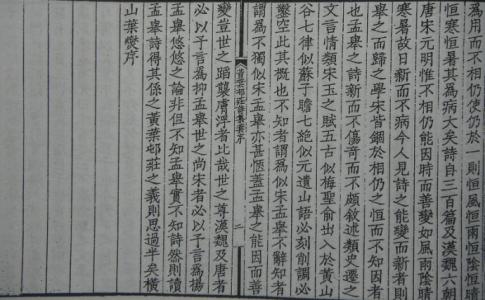 為用而不相仍使仍於一則恒風恒雨恒陰恒暘
恒寒恒暑其為病大矣詩自三百篇及漢魏六朝
唐宋元明惟不相仍能因時而善變如風雨陰晴
寒暑故日新而不病今人見詩之能變而新者則
舉之而歸之學宋皆錮於相仍之恒而不知因者
也孟舉之詩新而不傷奇而不頗敘述類史遷之
文言情類宋玉之賦五古似梅聖俞出入於黃山
谷七律似蘇子瞻七絕似元遺山語必刻削調必
鑿空此其概也不知者謂為似宋孟舉不辭知者
謂為不獨似宋孟舉亦甚愜蓋孟舉之能因而善
黃葉邨莊詩集葉序
二
變豈世之蹈襲膚浮者比哉世之尊漢魏及唐者
必以予言為抑孟舉世之尚宋者必以予言為揚
孟舉悠悠之論非但不知孟舉實不知詩然則讀
孟舉詩得其係之黃葉邨莊之義則思過半矣橫
山葉燮序